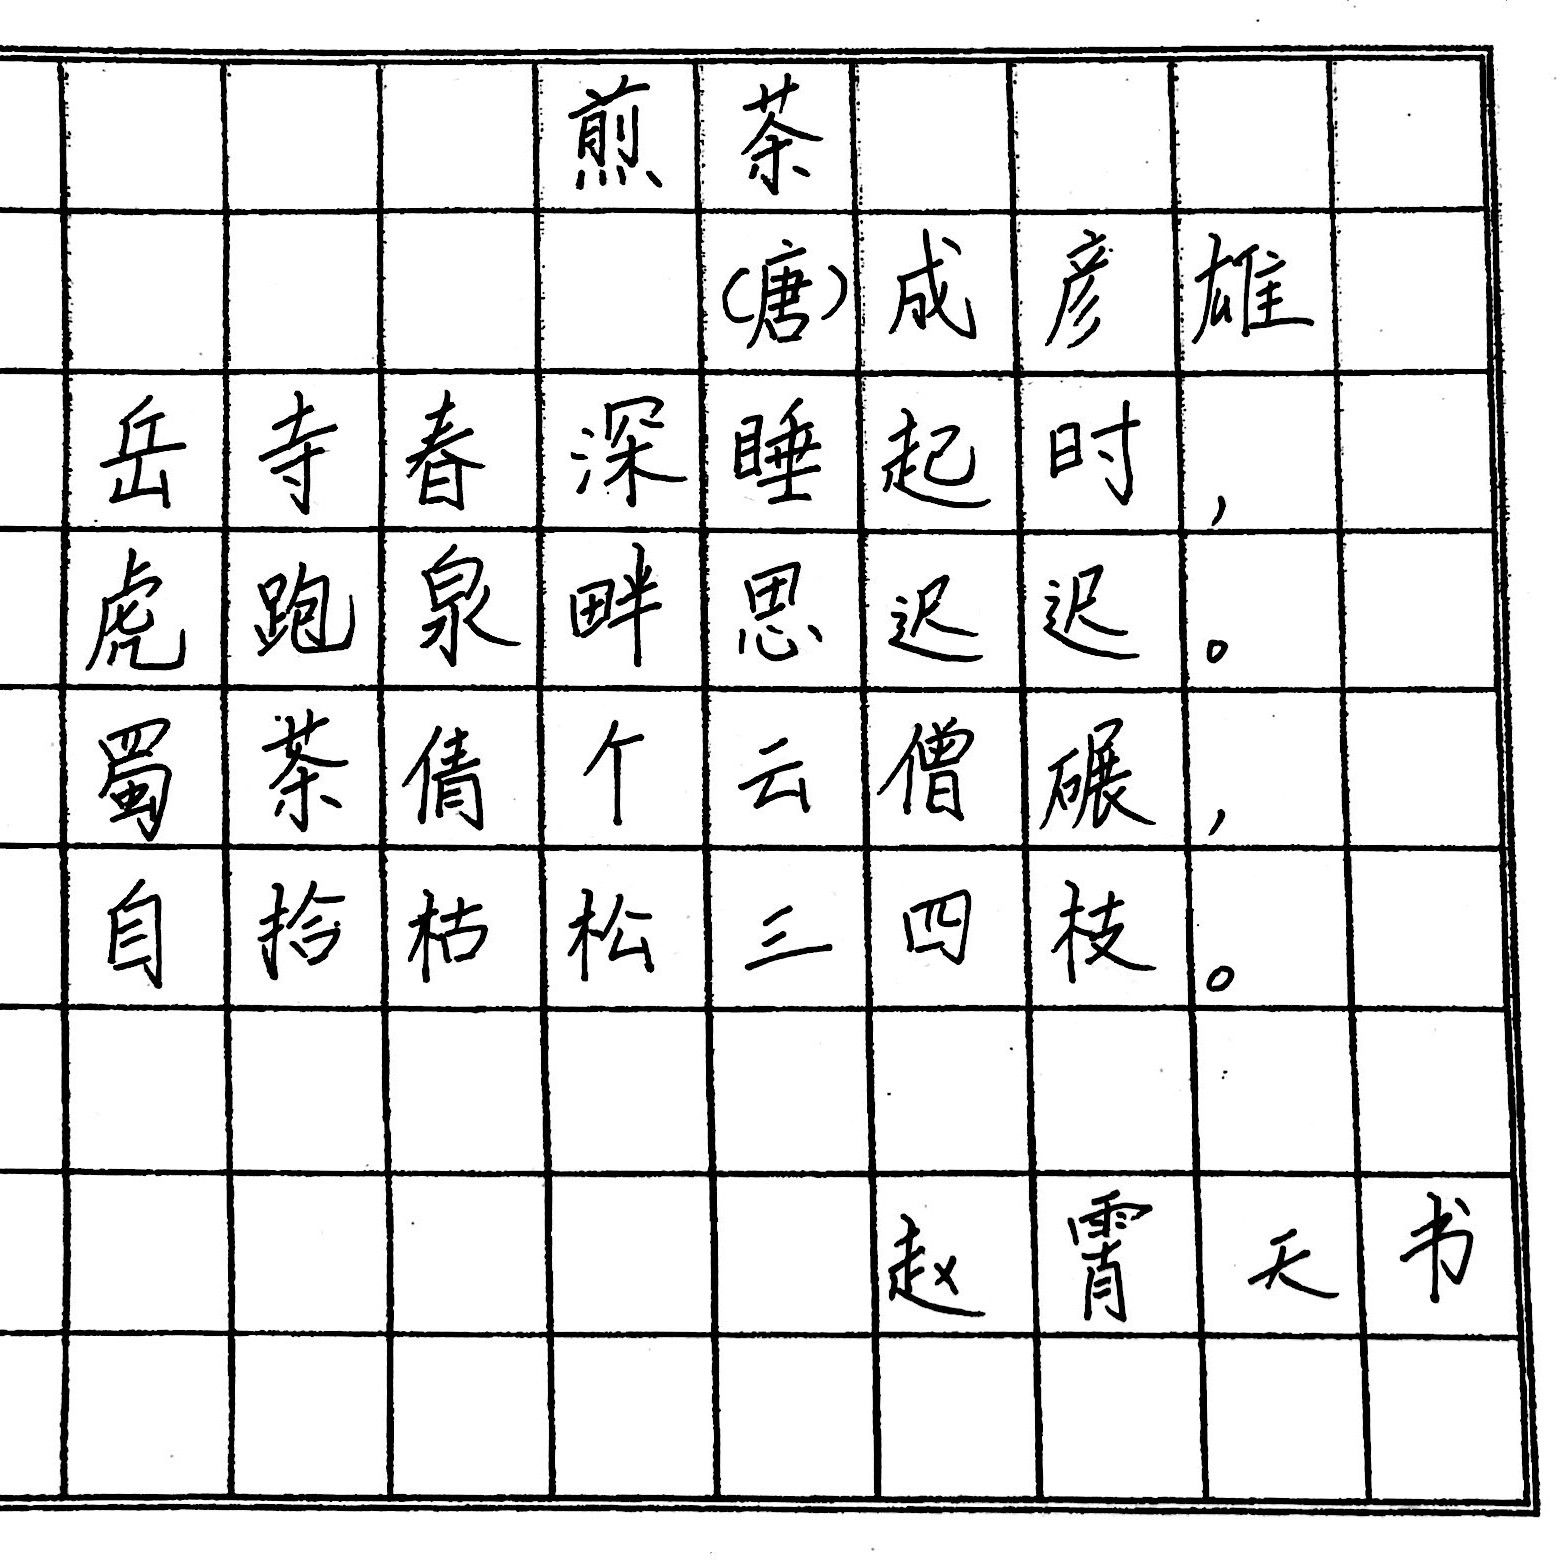 煎茶
(唐)成彦雄
岳寺春深睡起时，
虎跑泉畔思迟迟。
蜀茶倩个云僧碾，
自拾枯松三四枝。
赵霄天书